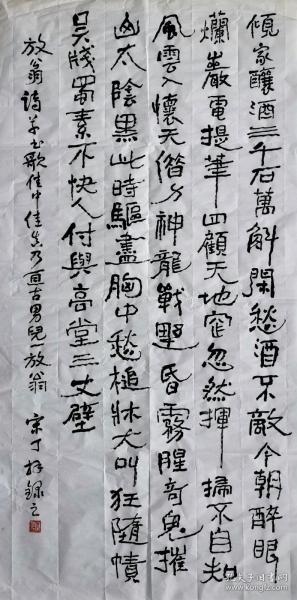 傾家釀酒三千石萬斛閑愁酒不敵今朝醉眼
爛巖電提筆四顧天地窄忽然揮一掃不自知
風雲入懷天借力神龍戰野昏霧腥奇鬼摧
山太陰黑此時驅盡胸中愁槌牀大叫狂墮幘
吳牋蜀素不快人付與高堂三丈壁
放翁詩草書歌佳中佳真乃亘古男兒一放翁
宋丁 錄之